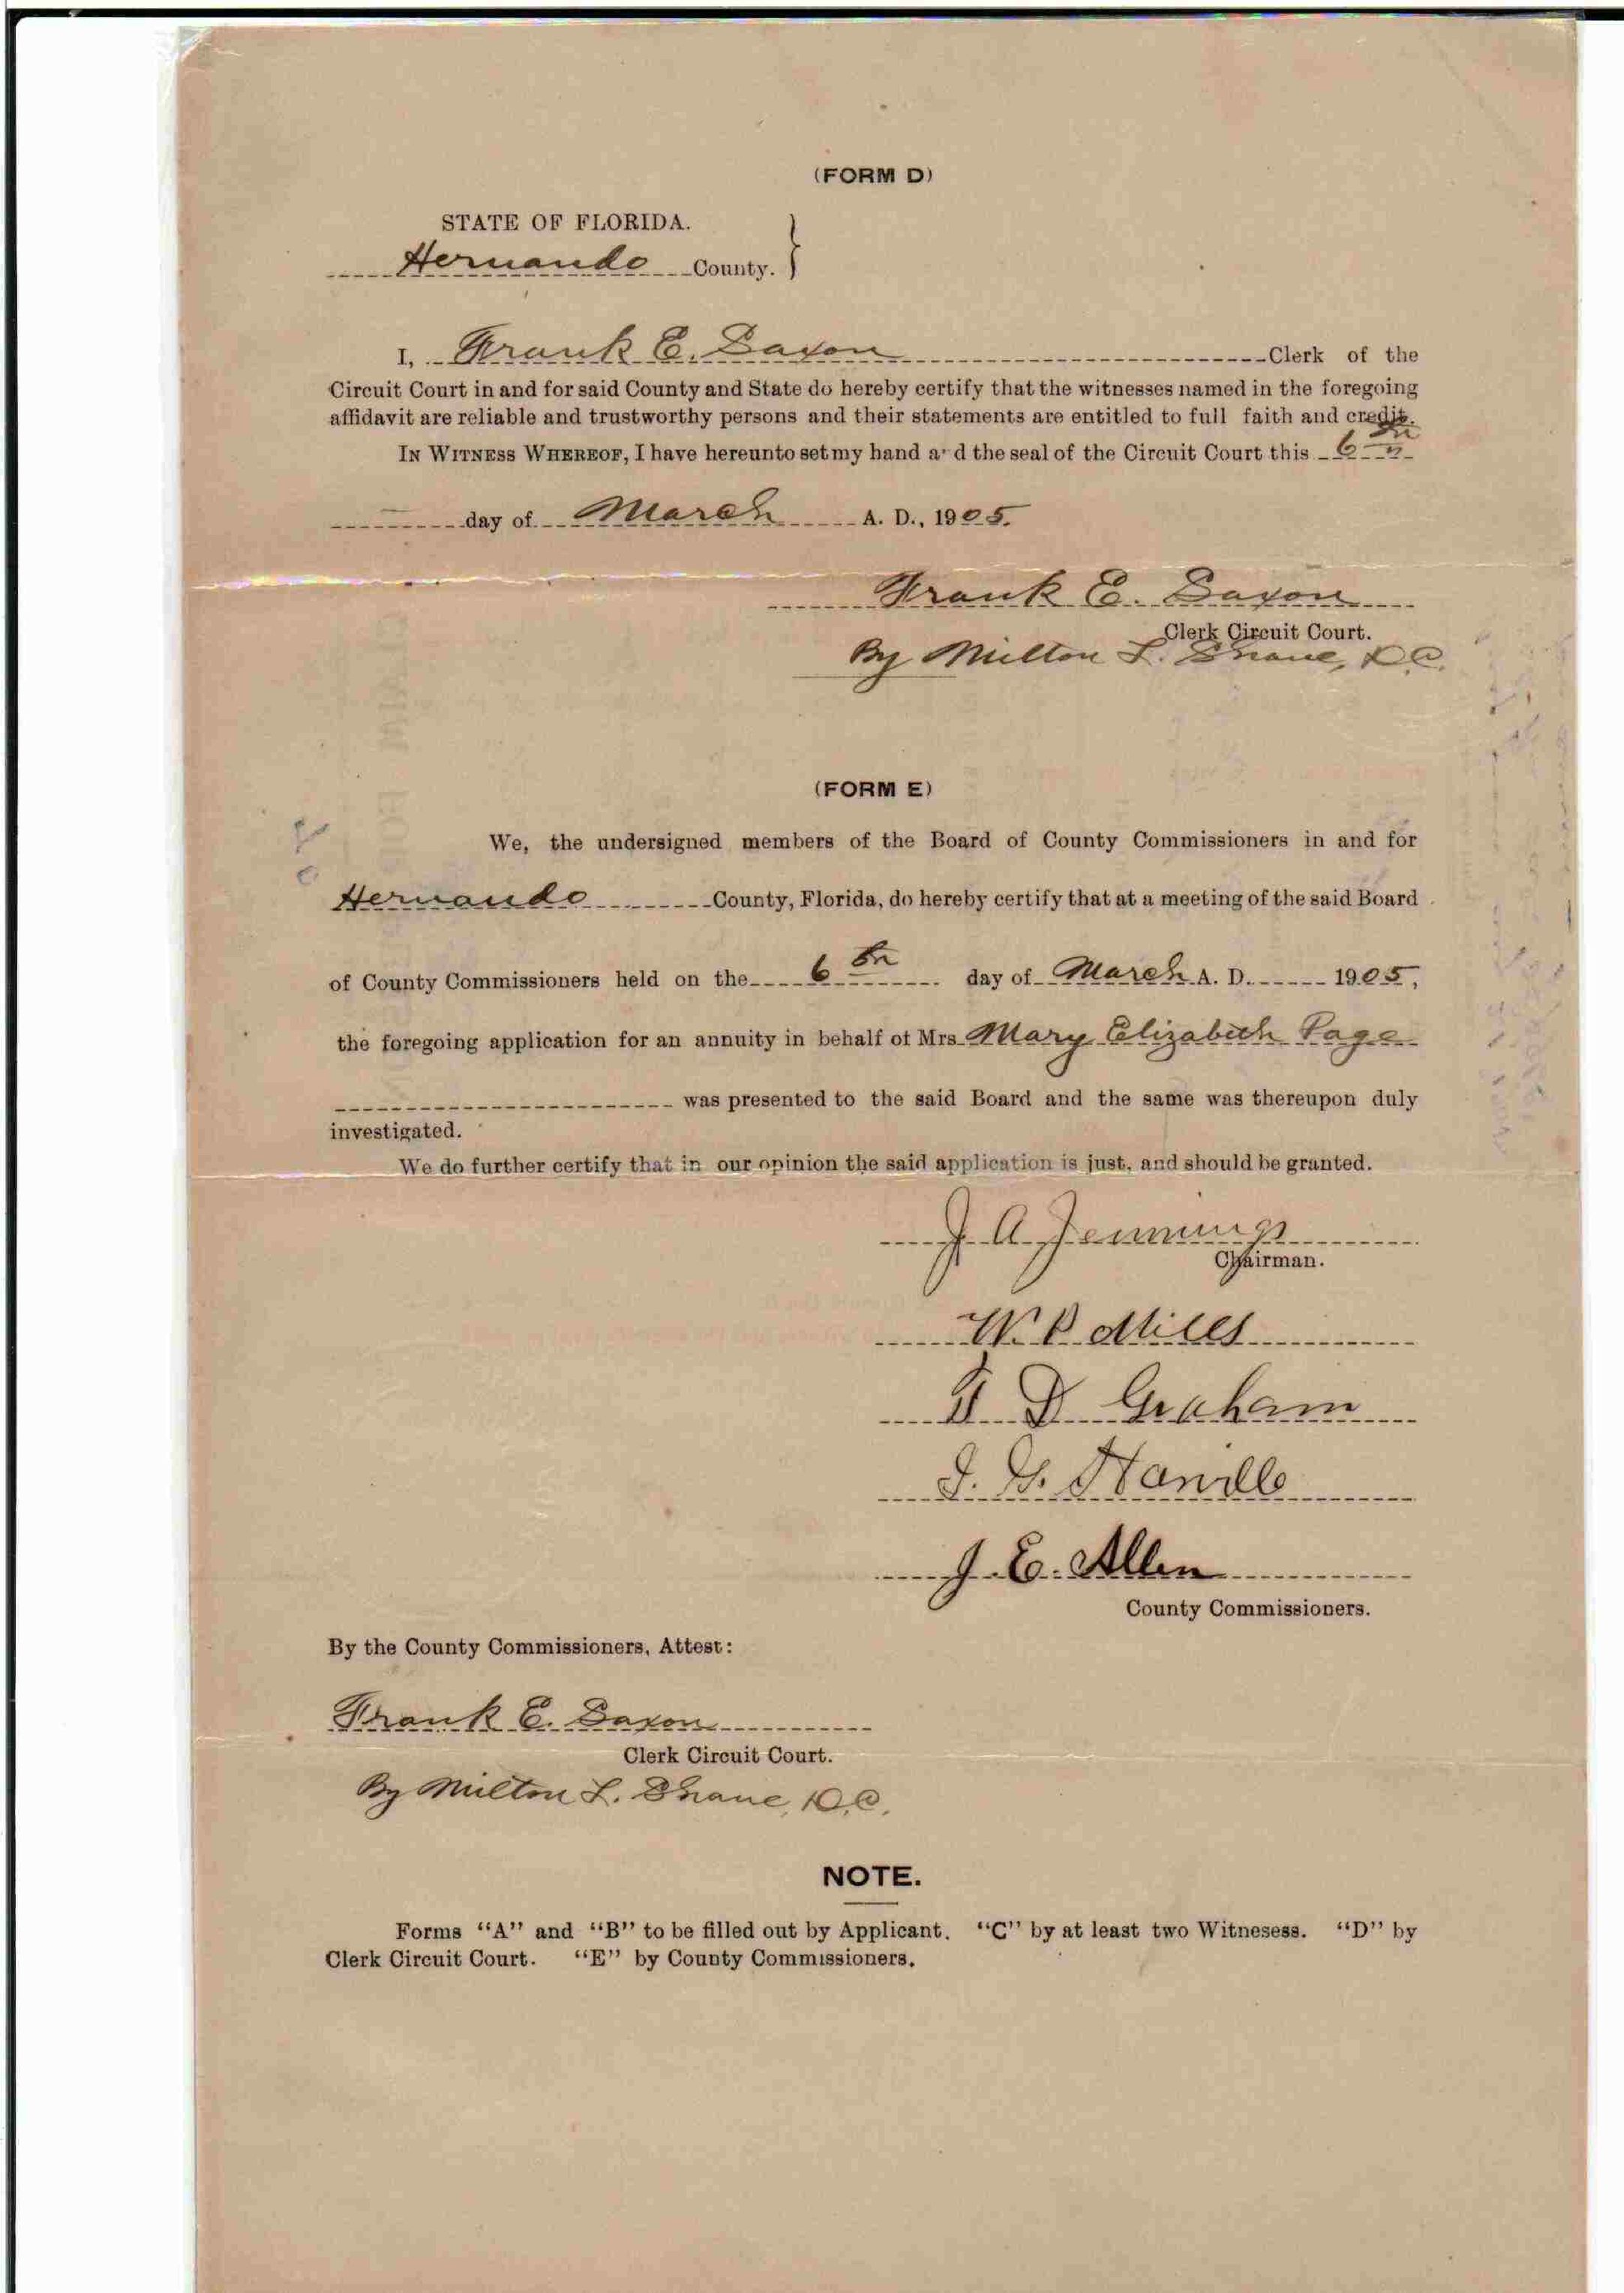 (FORM D)
STATE OF FLORIDA.
Hernando County.
I, Frank E. Saxon Clerk of the
Circuit Court in and for said County and State do hereby certify that the witnesses named in the foregoing
affidavit are reliable and trustworthy persons and their statements are entitled to full faith and credit.
IN WITNESS WHEREOF, I have hereunto set my hand a d the seal of the Circuit Court this 6th
day of March A. D., 1905.
Frank E. Saxon
Clerk Circuit Court.
By Milton L. D.C.
(FORM E)
We, the undersigned members of the Board of County Commissioners in and for
Hernando County, Florida, do hereby certify that at a meeting of the said Board
of County Commissioners held on the 6th day of March A. D. 1905,
the foregoing application for an annuity in behalf of Mrs Mary Elizabeth Page
was presented to the said Board and the same was thereupon duly
investigated.
We do further certify that in our opinion the said application is just, and should be granted.
J A Jennings
Chairman.
W. P. Mills
D Graham
J. E. Allen
County Commissioners.
By the County Commissioners, Attest:
Frank E. Saxon
Clerk Circuit Court.
By Milton L. D.C.
NOTE.
Forms "A" and "B" to be filled out by Applicant. "C" by at least two Witnesess. "D" by
Clerk Circuit Court. "E" by County Commissioners.